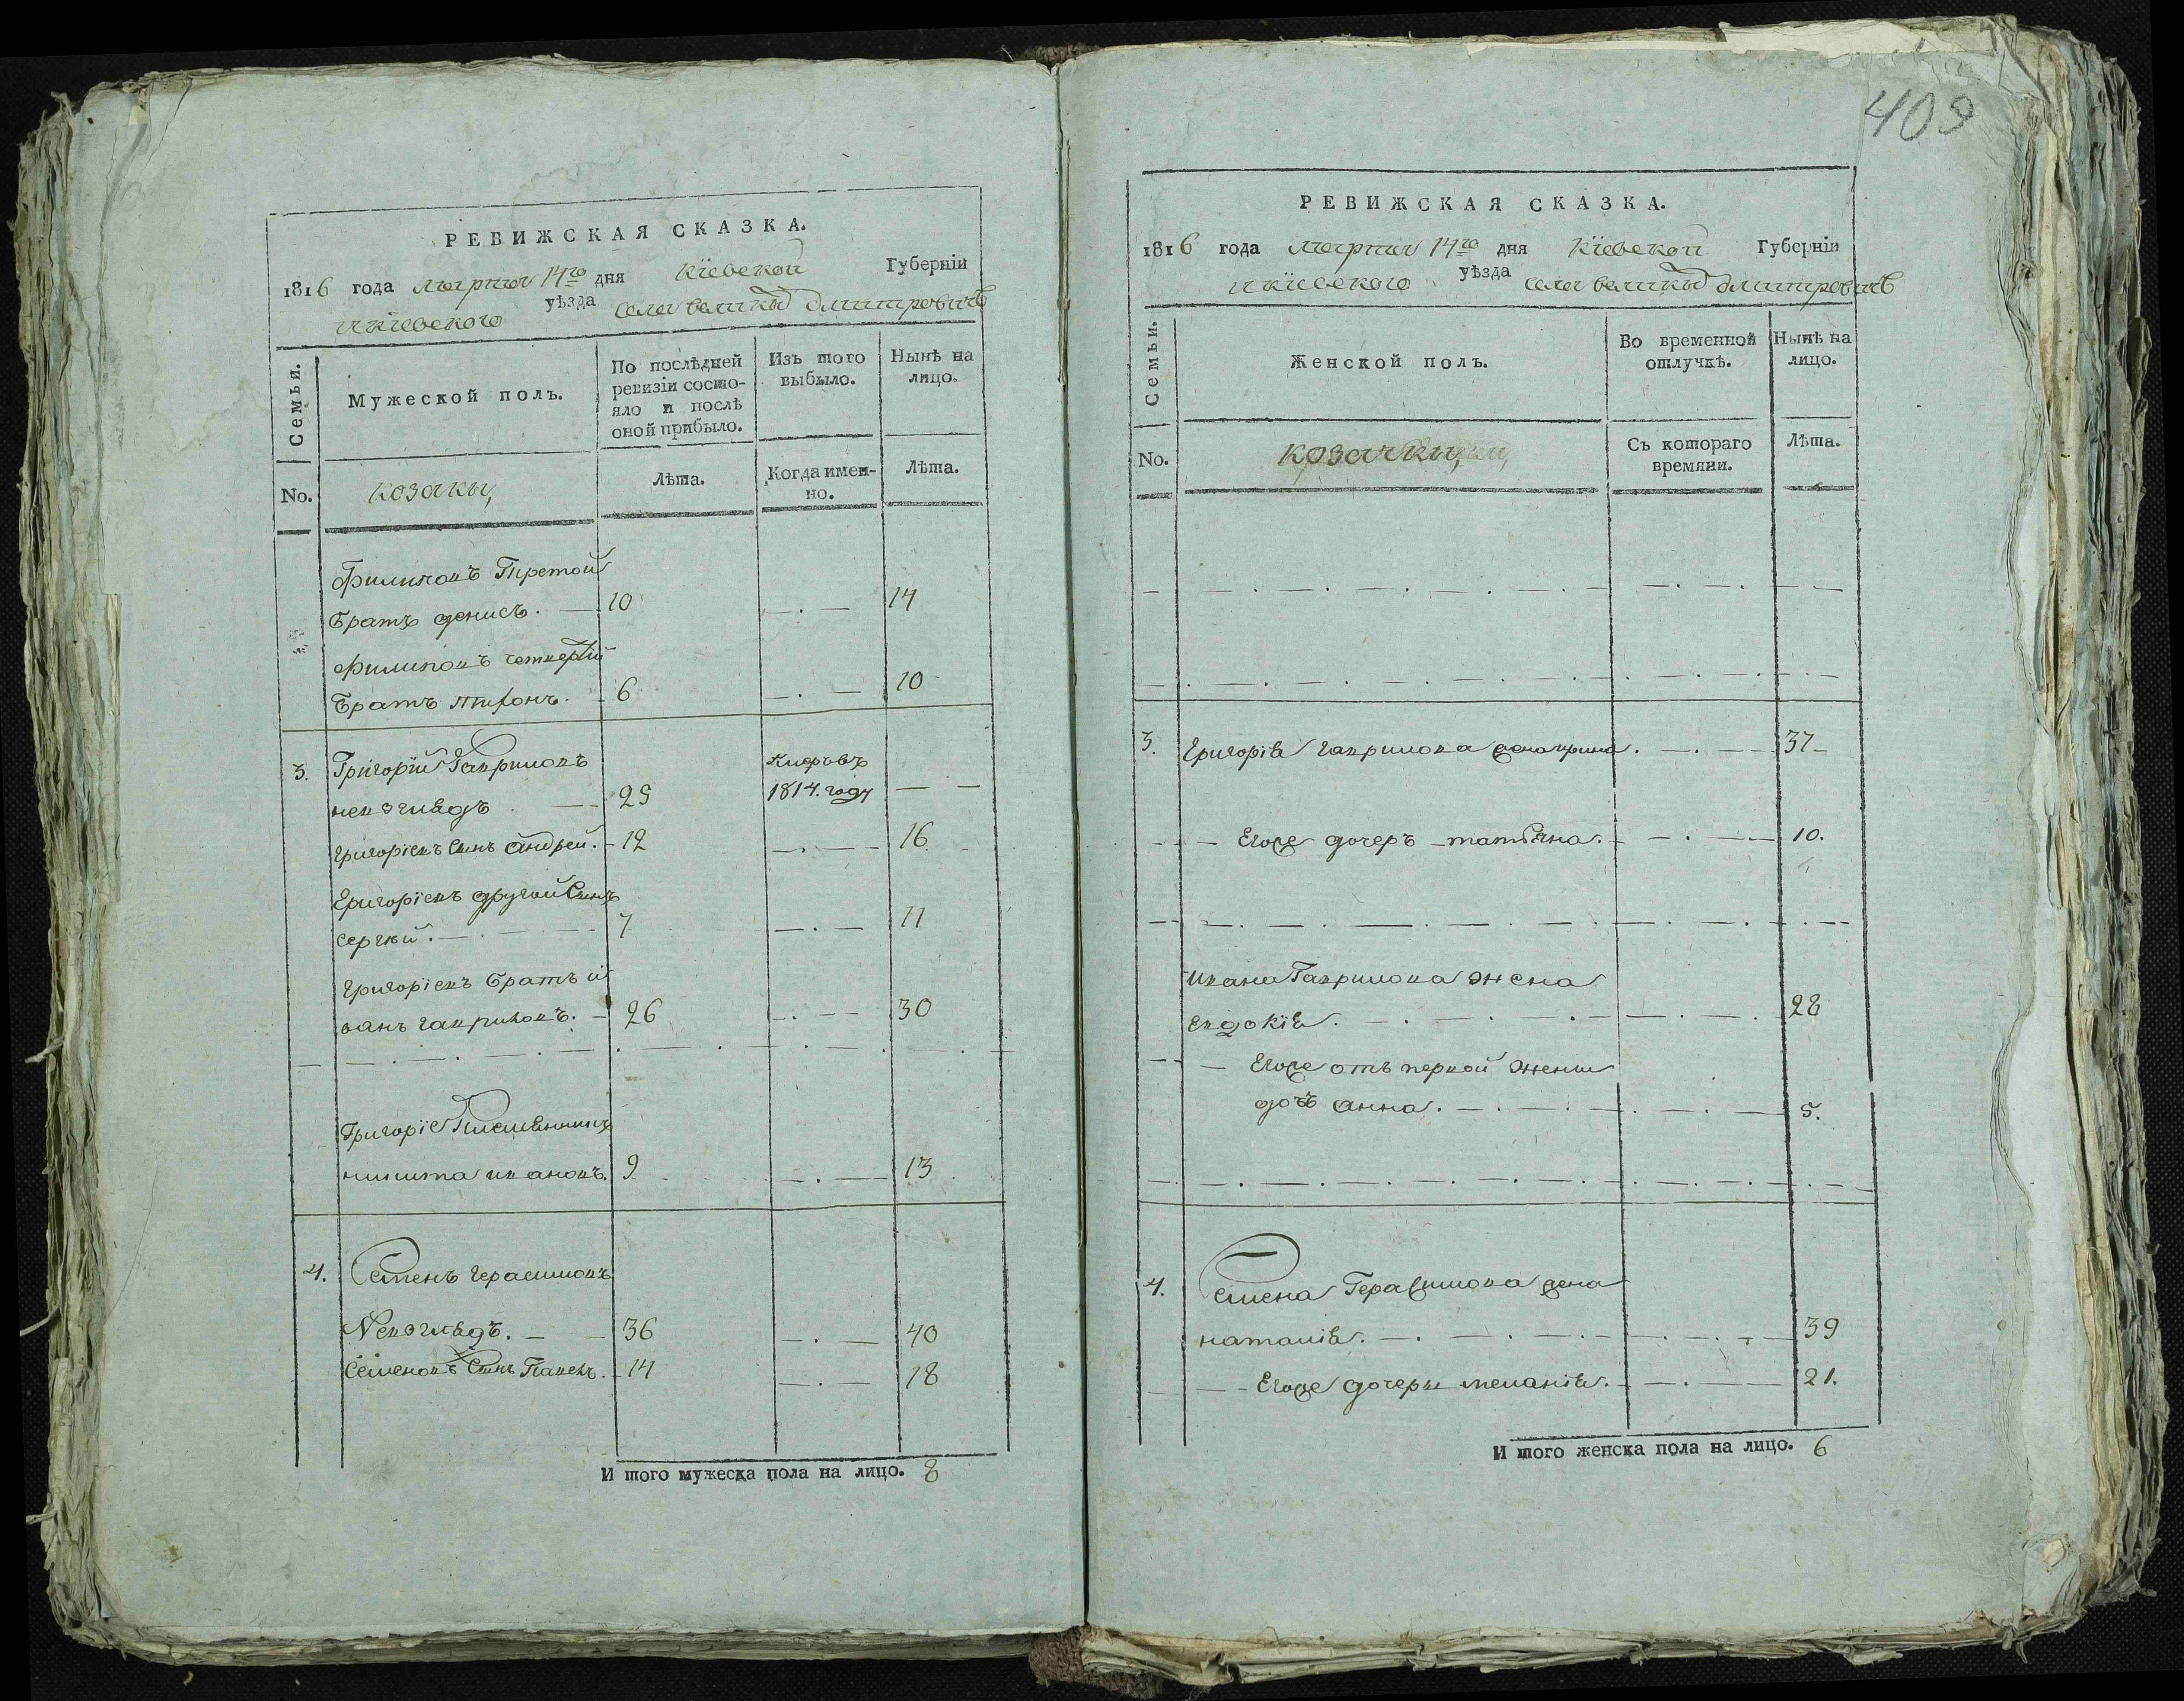 РЕВИЖСКАЯ СКАЗКА.
1816 года марта 14го дня Кіевской Губерніи
и кіевского уѣзда села великихъ дмитровичъ
Семьи.
Мужеской полъ.
По послѣдней ревизіи состояло и послѣ оной прибыло.
Изъ того выбыло.
Нынѣ на лицо.
No.
козаки,
Лѣта.
Когда именно.
Лѣта.
Филиповъ Третой
Братъ денисъ. 10 14
Филиповъ четвертій
Братъ тихонъ. 6 10
3. Григорій Гавриловъ
непогивдъ 25
умръ въ
1814. году
григоріевъ Сынъ андрей. 12 16
Григоріевъ другой Сынъ
сергѣй. 7 11
григоріевъ Братъ и
ванъ гавриловъ. 26 30
Григорія Племѣнникъ
никита ивановъ. 9 13
4. Семенъ герасимовъ
36 40
Семеновъ Сынъ Павелъ. 14 18
И того мужеска пола на лицо. 8
409
РЕВИЖСКАЯ СКАЗКА.
1816 года марта 14го дня Кіевской Губерніи
и кіевского уѣзда села великихъ дмитровичъ
Семьи.
Женской полъ.
Во временной отлучкѣ.
Нынѣ на лицо.
No.
козачки,
Съ котораго времяни.
Лѣта.
3. Григорія гаврилова жена ирина. 37
Егоже дочеръ татіяна. 10.
ивана Гаврилова жена
евдокія. 28
Егоже отъ первой жены
дочъ анна. 5.
4. Семена Герасимова жена
наталія. 39
Егоже дочеръ меланія. 21.
И того женска пола на лицо. 6